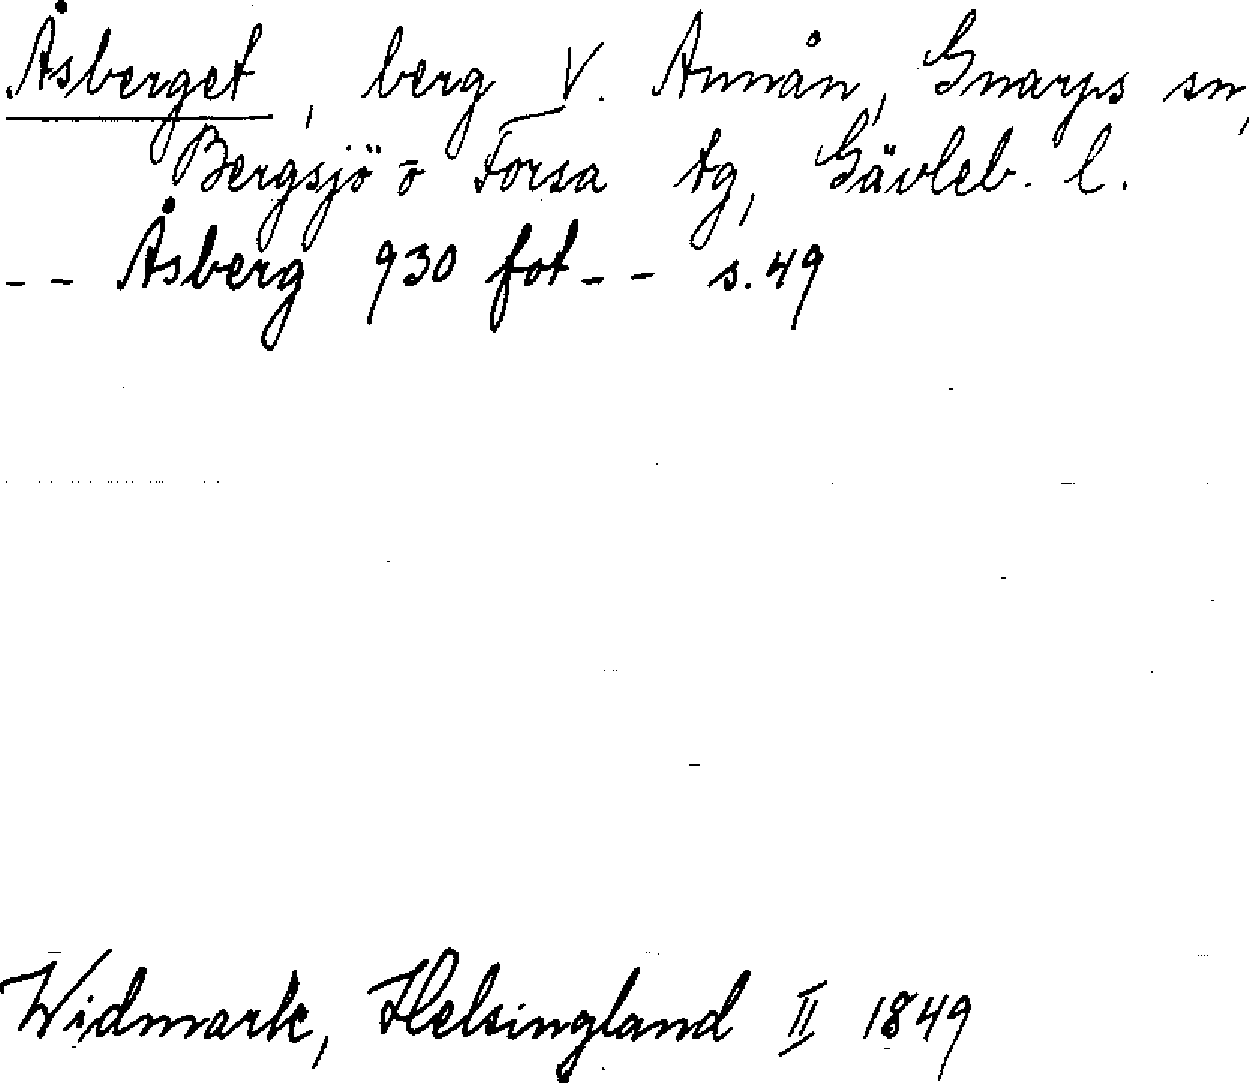 Åsberget, berg V. Annån, Gnarps sn,
Bergsjö o Forsa tg, Gävleb. l.
-- Åsberg 930 fot -- s. 49
Widmark, Helsingland II 1849